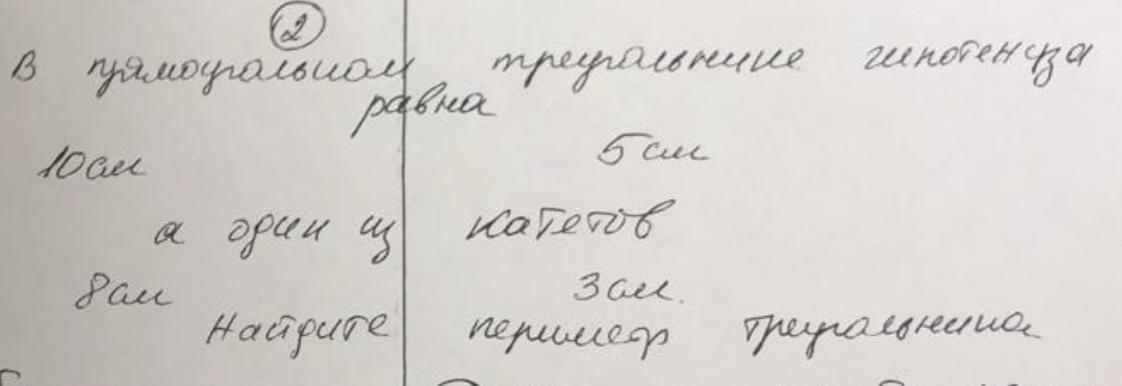 2
В прямоугольном треугольнике гипотенуза
равна
10 см 5 см
а один из катетов
8 см 3 см.
Найдите периметр треугольника